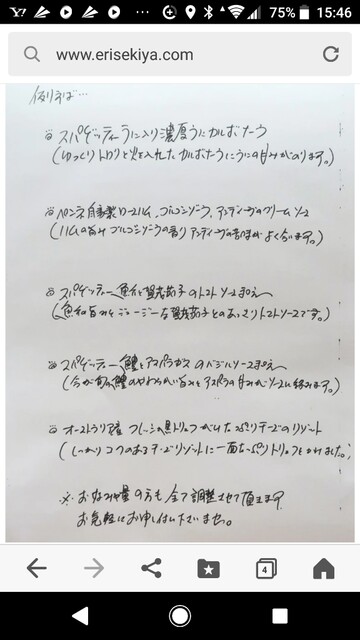 75% 15:46
www.erisekiya.com
例えば…
スパゲッティーうに入り濃厚うにカルボナーラ
(ゆっくりトロリと火を入れたカルボナーラにうにの甘みがのります。)
ペンネ自家製ロースハム、ゴルゴンゾーラ、アンディーブのクリームソース
(ハムの旨み ゴルゴンゾーラの香り アンディーブの苦味がよく合います。)
スパゲッティー 魚介と賀茂茄子のトマトソース
(魚介の旨みとジューシーな賀茂茄子とのあっさりトマトソースです。)
スパゲッティー 鱧とアスパラガスのバジルソース
(今が旬の鱧のやわらかい旨みとアスパラの甘みがソースに絡みます。)
オーストラリア産 フレッシュ黒トリュフ かけ たっぷりチーズのリゾット
(しっかりコクのあるチーズリゾットに一面たっぷりトリュフをかけました。)
※ お好みや量の方も全て調整させて頂きます
お気軽にお申し付け下さいませ。
4